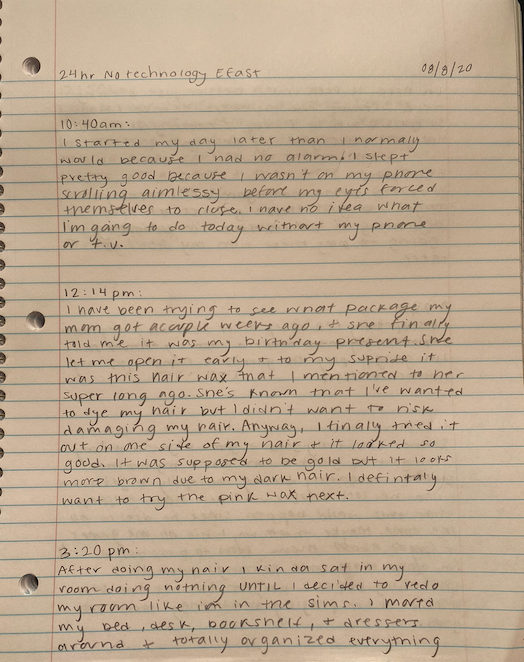 24hr No technology Efast 08/8/20
10:40am:
I started my day later than I normaly
would because I had no alarm. I slept
pretty good because I wasn't on my phone
scrolling aimlessy before my eyes forced
themselves to close. I have no idea what
I'm gang to do today without my phone
or t.v.
12:14 pm:
I have been trying to see what package my
mom got acouple weeks ago, + she finally
told me it was my birthday present. She
let me open it early + to my suprise it
was this hair wax that I mentioned to her
super long ago. She's known that I've wanted
to dye my hair but I didn't want to risk
damaging my hair. Anyway, I finaly tried it
out on one side of my hair + it looked so
good. It was supposed to be gold but it looks
more brown due to my dark hair. I defintaly
want to try the pink wax next.
3:20 pm:
After doing my hair I kinda sat in my
room doing nothing UNTIL I decided to redo
my room like im in the sims. I moved
my bed, desk, bookshelf, + dressers
around + totally organized everything